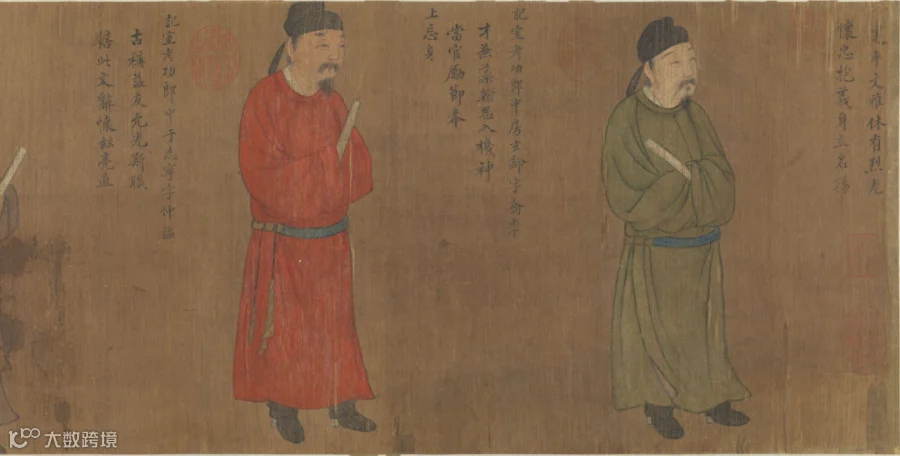 建平文雅休有烈光
懷忠抱義身立名揚
記室考功郎中房玄齡字喬年
才兼藻翰思入機神
當官勵節奉
上忘身
記室考功郎中于志寧字仲謐
古稱益友允光斯職
此文辭懷茲亮直
大数跨境